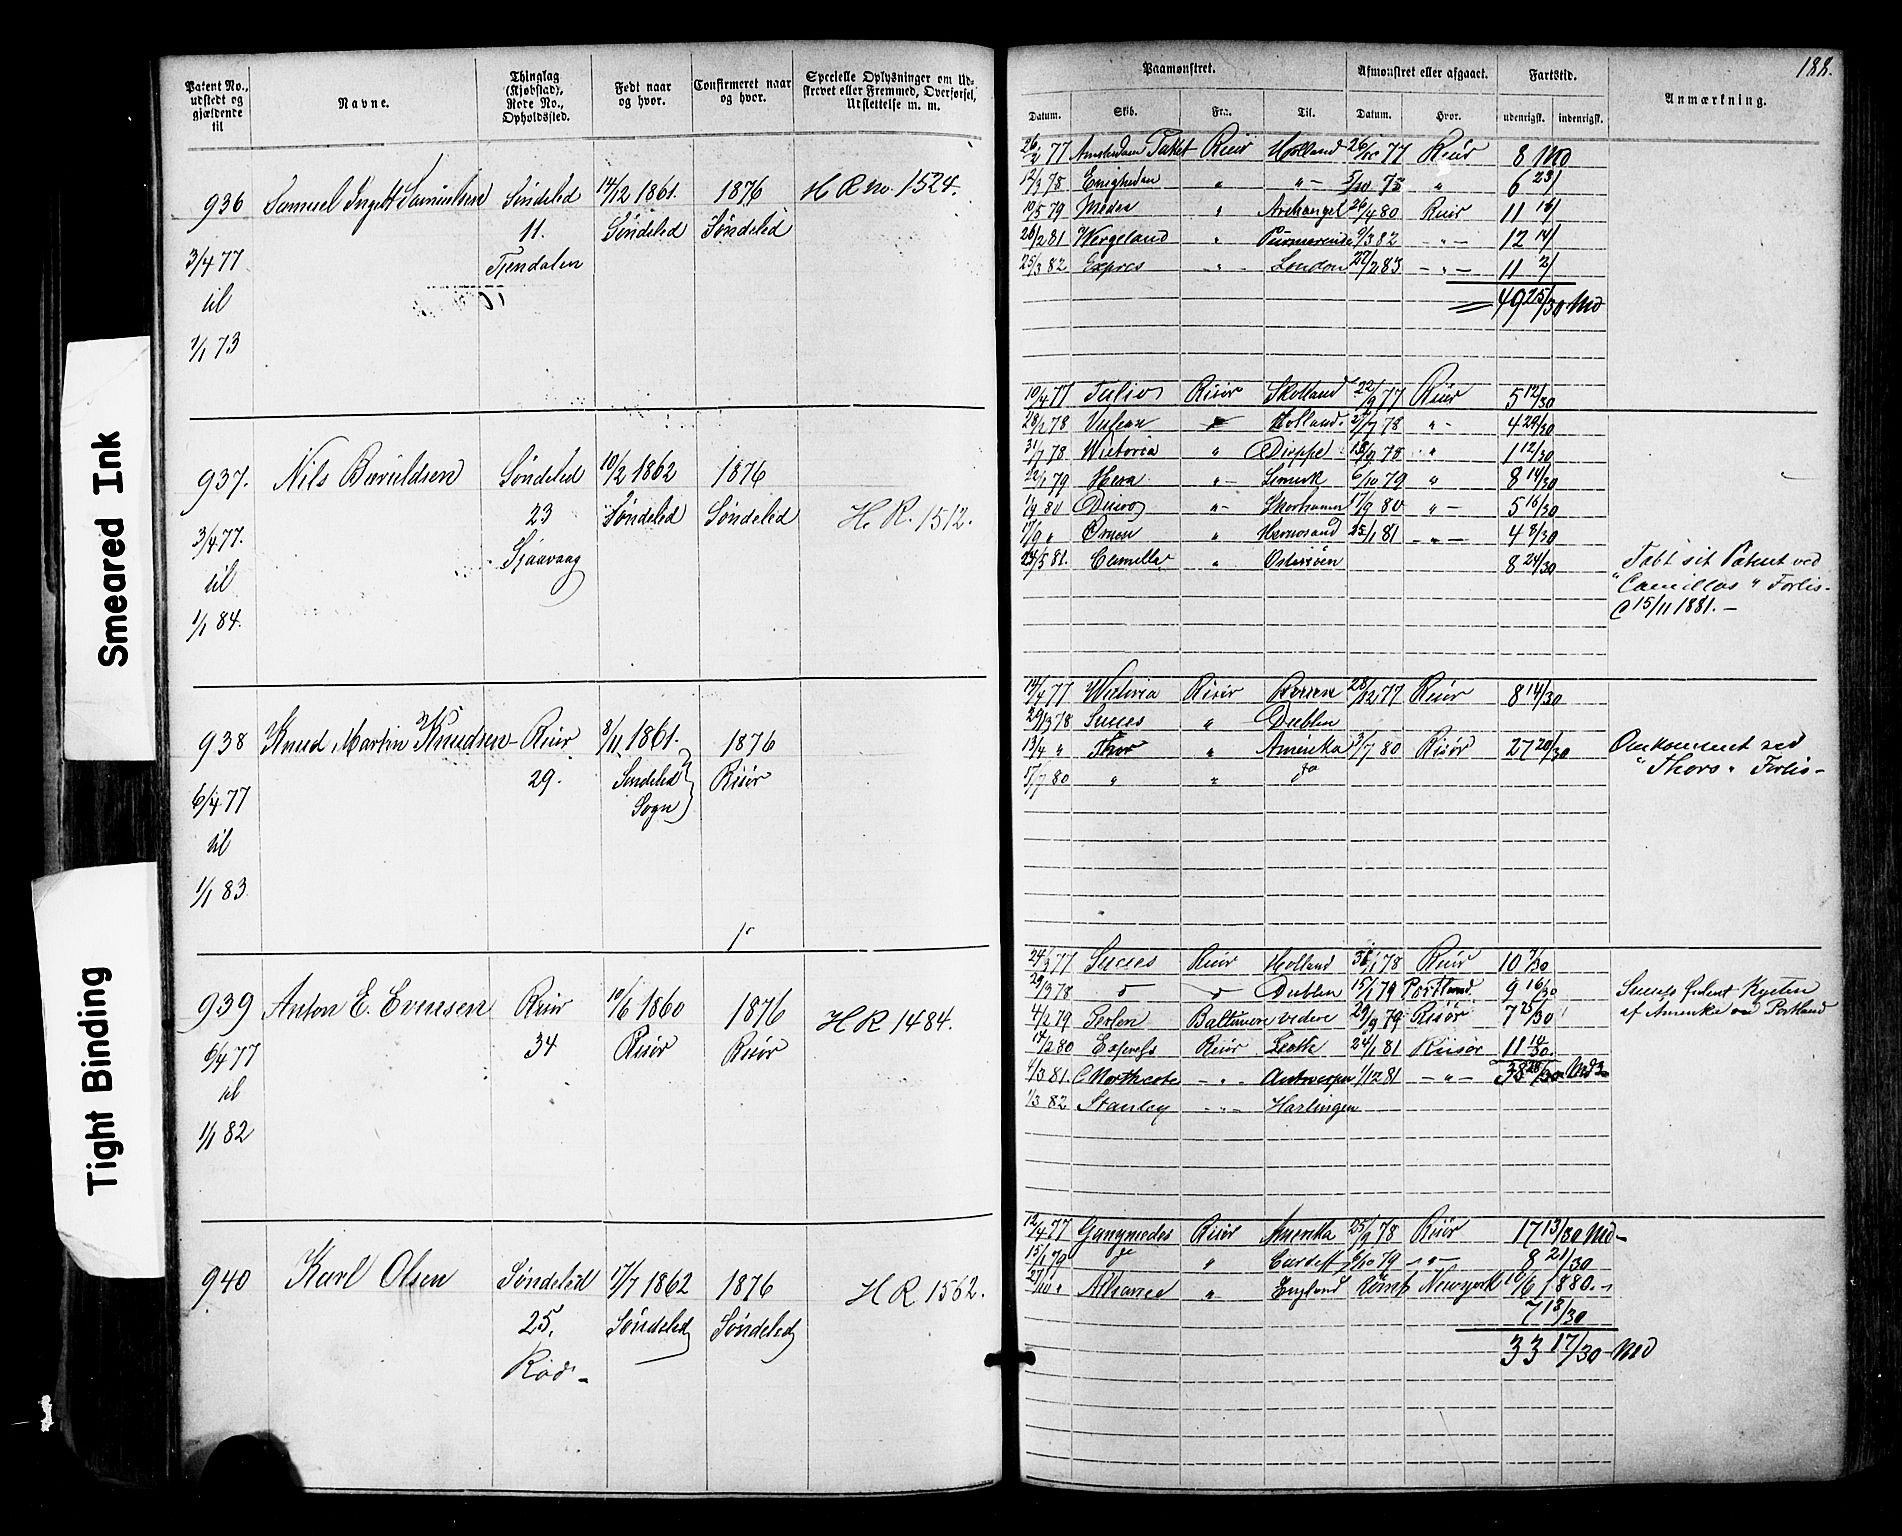 Smeared Ink
Tight Binding
Patent No., udstedt og gjældende til
Navne.
Thinglag (Kjøbstad), Rode No., Opholdssted.
Født naar og hvor.
Confirmeret naar og hvor.
Specielle Oplysninger om Udskrevet eller Fremmed, Overførsel, Udslettelse m. m.
936 Samuel Ingelt Samuelsen Søndeled 14/12 1861. 1876 H R no. 1524.
11. Søndeled Søndeled
3/4 77
til
1/1 73
937. Nils Søndeled 10/2 1862 1876
23 Søndeled Søndeled H. R. 1512.
3/4 77.
til
1/1 84.
938 Knud Martin Knudsen Risør 8/11 1861. 1876
29. Søndeled Risør
Sogn
6/4 77
til
1/1 83
939 Anton E. Evensen Risør 10/6 1860 1876 H R 1484.
34 Risør Risør
6/4 77
til
1/1 82
940 Karl Olsen Søndeled 17/7 1862 1876 H R 1562.
25. Søndeled Søndeled
Rød
188.
Paamønstret.
Afmønstret eller afgaaet.
Fartstid.
Anmærkning.
Datum. Skib. Fra. Til. Datum. Hvor. udenrigsk. indenrigsk.
77 Amsterdam Paket Risør Holland 77 Risør 8 Md
12/3 78 Enigheden " " 5/10 78 " 6 23/
10/5 79 Medea " Archangel 26/4 80 Risør 11 16/
26/2 81 Wergeland " 9/3 82 " 12 14/
25/3 82 Expres " London 27/2 83 " 11 2/
49 25/30 Md
10/4 77 Tulio Risør Skotland 22/9 77 Risør 5 12/30
78 Vulcan Holland 78 " 4 29/30
31/7 78 Victoria " Dieppe 13/9 78 " 1 12/30
22/1 79 Hera " 6/10 79 " 8 14/30
80 " 17/9 80 " 5 16/30
17/9 " Ørnen " Hernosand 25/1 81 " 4 8/30
81. Camilla " 8 24/30 Tabt sit Patent ved
"Camillas" Forlis
15/11 1881.
14/4 77 Victoria Risør 28/12 77 Risør 8 14/30
29/3 78 Succes " Dublin
13/4 " Thor " Amerika 3/7 80 Risør 27 20/30 Omkommet ved
"Thors" Forlis
17/7 80 " " do
24/3 77 Succes Risør Holland 78 Risør 10 7/30
29/3 78 Dublin 15/1 79 Portland 9 16/30
4/2 79 Baltimore videre 29/9 79 Risør 7 25/30
af Amerika Portland
14/2 80 Express Risør 24/1 81 Risør 11 14/30
4/3 81. Northcote " Antwerpen 1/12 81 " 38 28/30 Md
1/3 82 Stanley " Harlingen
12/4 77 Ganymedes Risør Amerika 25/9 78 Risør 17 13/30 Md
15/1 79 " Cardiff 6/10 79 " 8 21/30
27/10 " Alliance " England Rømt Newyork 10/6 1880.
7 13/30
33 17/30 Md